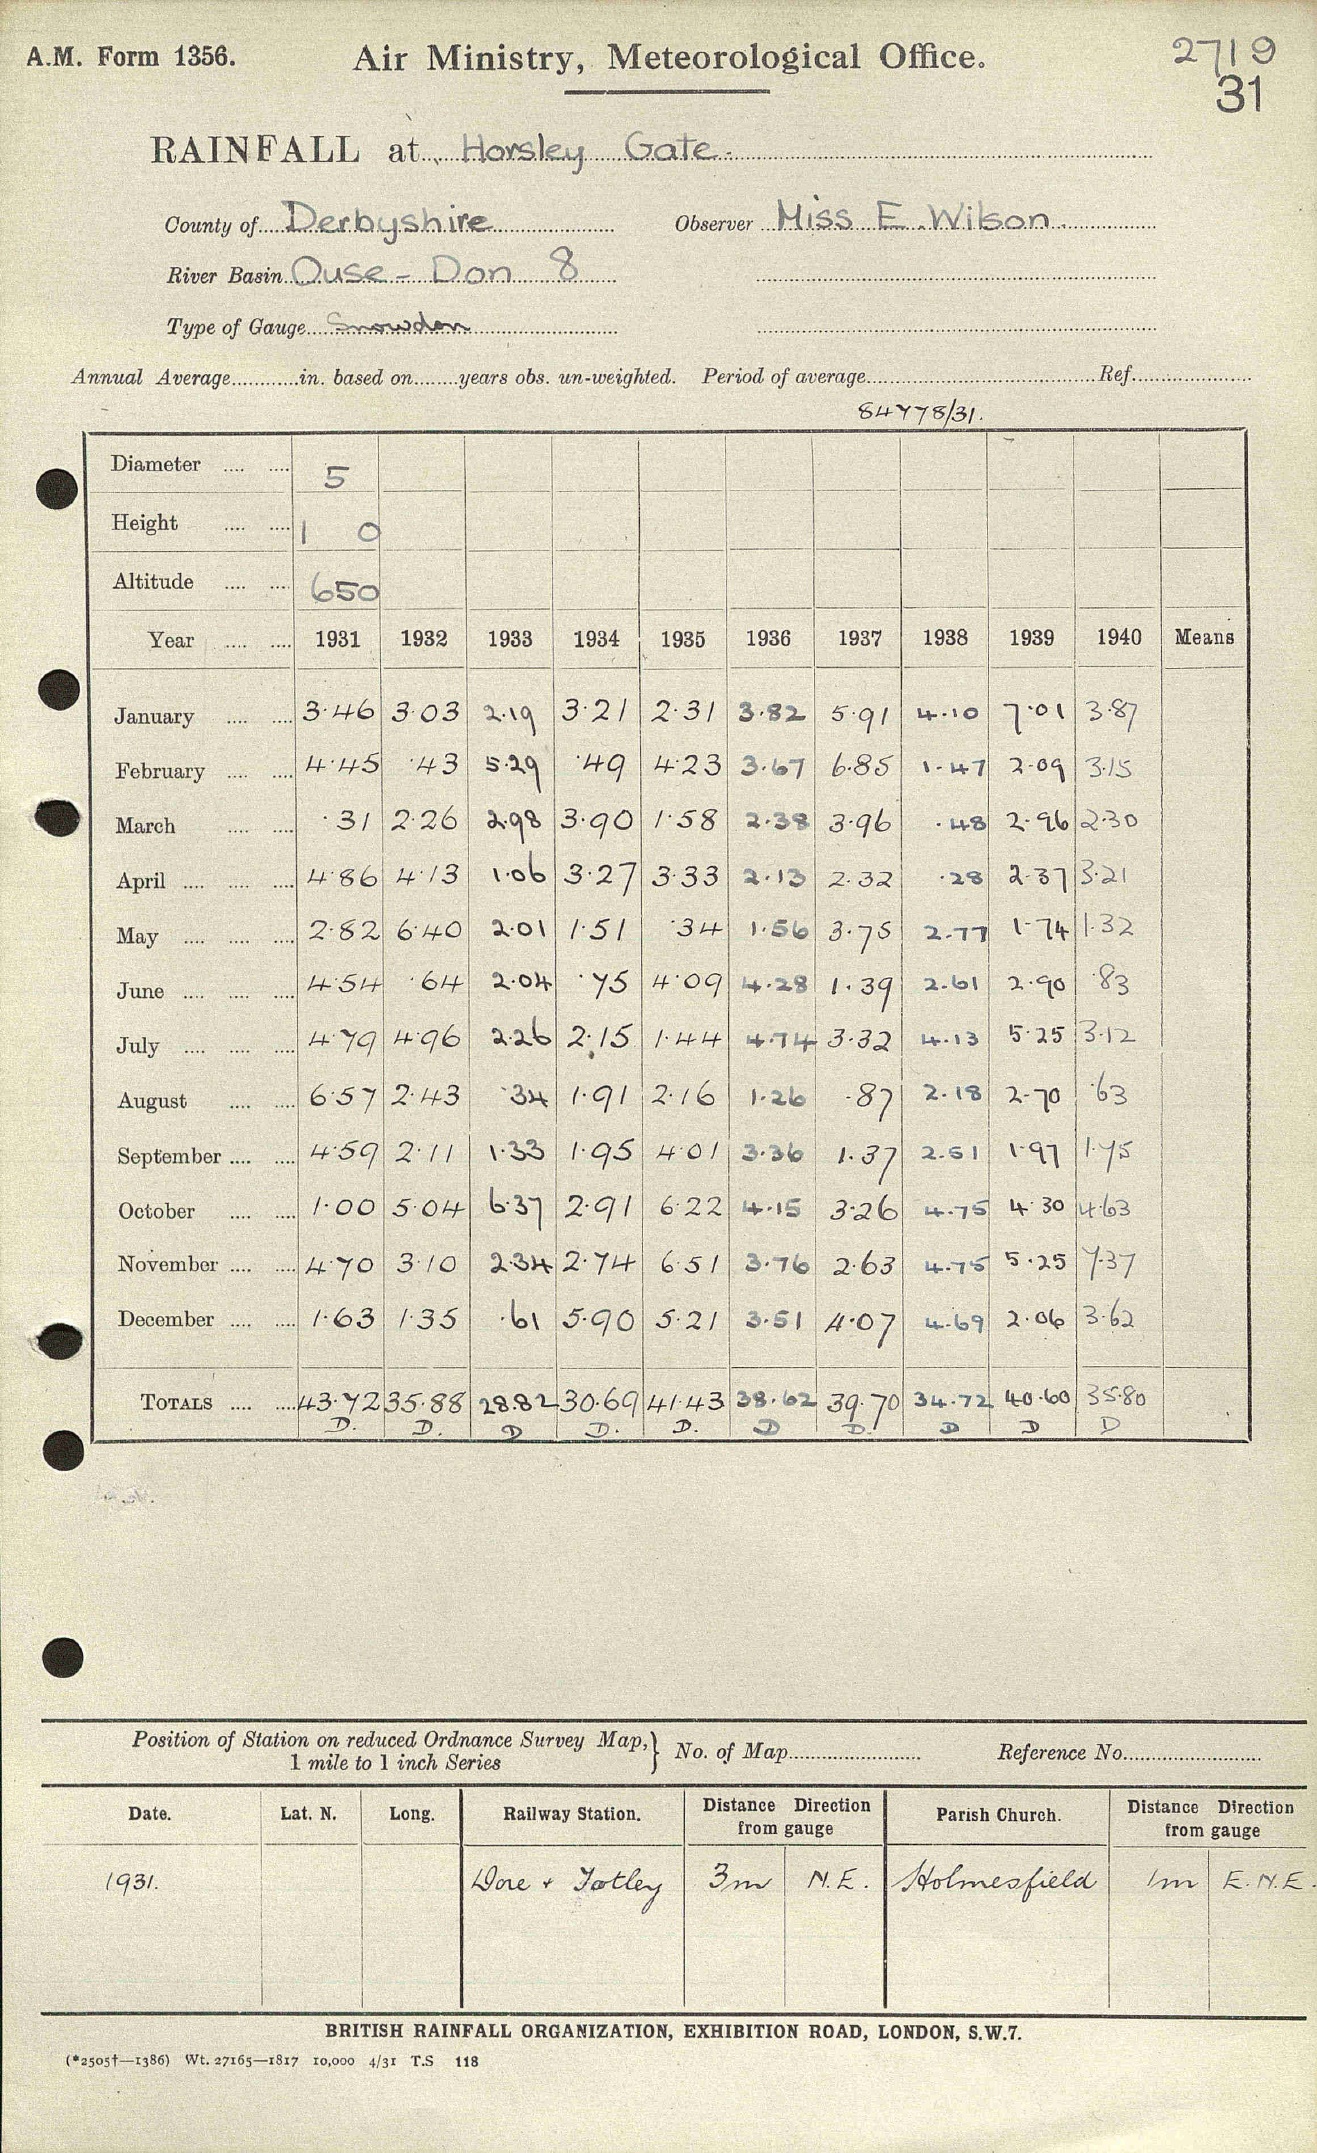 A.M. Form 1356.
Air Ministry, Meteorological Office.
2719
31
RAINFALL at Horsley Gate.
County of Derbyshire Observer Miss E. Wilson.
River Basin Ouse - Don 8
Type of Gauge Snowdon
Annual Average in. based on years obs. un-weighted. Period of average Ref.
84778/31.
Diameter 5
Height 1 0
Altitude 650
Year 1931 1932 1933 1934 1935 1936 1937 1938 1939 1940 Means
January 3.46 3.03 2.19 3.21 2.31 3.82 5.91 4.10 7.01 3.87
February 4.45 .43 5.29 .49 4.23 3.67 6.85 1.47 2.09 3.15
March .31 2.26 2.98 3.90 1.58 2.38 3.96 .48 2.96 2.30
April 4.86 4.13 1.06 3.27 3.33 2.13 2.32 .28 2.37 3.21
May 2.82 6.40 2.01 1.51 .34 1.56 3.75 2.77 1.74 1.32
June 4.54 .64 2.04 .75 4.09 4.28 1.39 2.61 2.90 .83
July 4.79 4.96 2.26 2.15 1.44 4.74 3.32 4.13 5.25 3.12
August 6.57 2.43 .34 1.91 2.16 1.26 .87 2.18 2.70 .63
September 4.59 2.11 1.33 1.95 4.01 3.36 1.37 2.51 1.97 1.75
October 1.00 5.04 6.37 2.91 6.22 4.15 3.26 4.75 4.30 4.63
November 4.70 3.10 2.34 2.74 6.51 3.76 2.63 4.75 5.25 7.37
December 1.63 1.35 .61 5.90 5.21 3.51 4.07 4.69 2.06 3.62
TOTALS 43.72 35.88 28.82 30.69 41.43 38.62 39.70 34.72 40.60 35.80
D. D. D D. D. D D. D D D
Position of Station on reduced Ordnance Survey Map,} No. of Map Reference No.
1 mile to 1 inch Series
Date. Lat. N. Long. Railway Station. Distance Direction from gauge Parish Church. Distance Direction from gauge
1931. Dore + Totley 3m N.E. Holmesfield 1m E.N.E.
BRITISH RAINFALL ORGANIZATION, EXHIBITION ROAD, LONDON, S.W.7.
(*2505†—1386) Wt. 27165—1817 10,000 4/31 T.S 118